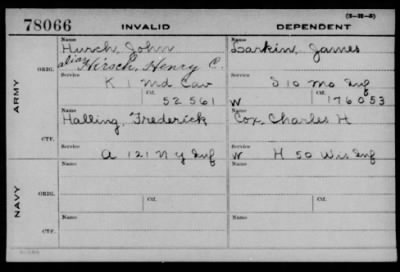 (3-22-5)
78066 INVALID DEPENDENT
Name Name
Hurch, John Larkin, James
alias Hirsch, Henry C.
ORIG.
Service Service
K 1 Md Cav S 10 Mo Inf
Ctf. Ctf.
52 561 W 176053
ARMY
Name Name
Halling, Frederick Cox, Charles H
CTF.
Service Service
A 121 N Y Inf W H 50 Wis Inf
Name Name
ORIG.
Service Ctf. Service Ctf.
NAVY
Name Name
CTF.
Service Service